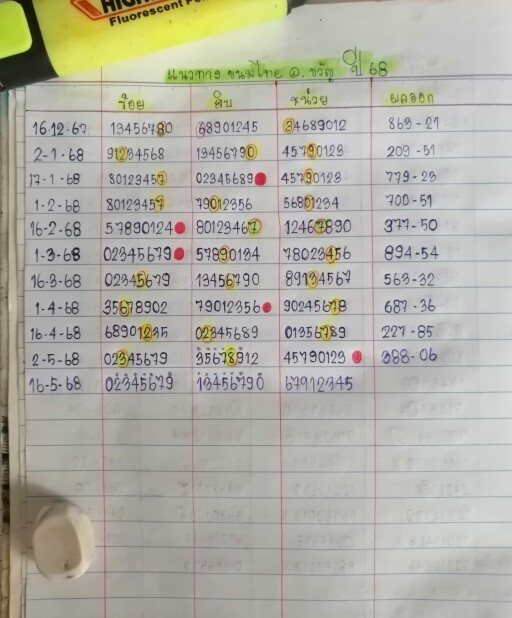 HIGH
Fluorescent Pe
แนวทาง ขนมไทย อ. ขวัญ ปี 68
ร้อย สิบ หน่วย ผลออก
16-12-67 13456780 68901245 34689012 863-21
2-1-68 91234568 13456790 45790123 209-51
17-1-68 80123457 02345689 45790123 779-23
1-2-68 80123457 79012356 56801234 700-51
16-2-68 57890124 80123467 12467890 377-50
1-3-68 02345679 57890134 78023456 894-54
16-3-68 02345679 13456790 89134567 563-32
1-4-68 35678902 79012356 90245678 687-36
16-4-68 68901235 02345689 01356789 227-85
2-5-68 02345679 35678912 45790123 388-06
16-5-68 02345679 13456790 67912345